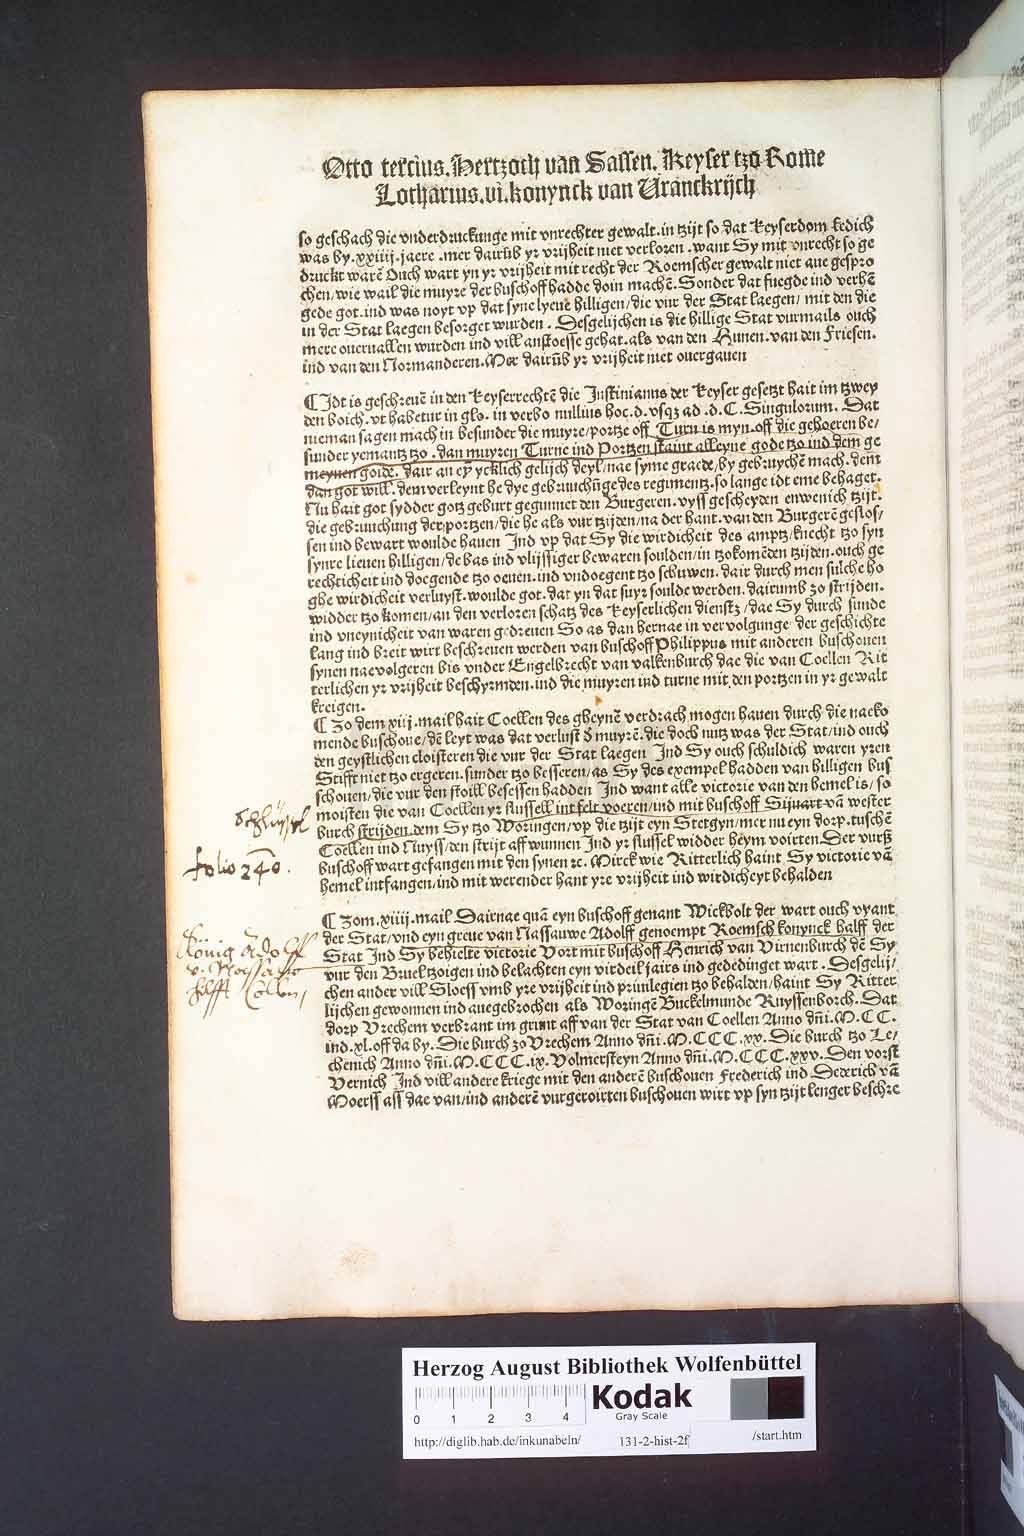 Otto tercius. Hertzoch van Sassen. Keyser tzo Rome
Lotharius. vi. konynck van Vranckrijch
so geschach die vnderdruckunge mit vnrechter gewalt. in tzijt so dat keyserdom kedich
was by. xxiiij. jaere. mer dairūb yr vrijheit niet verloren. want Sy mit vnrecht so ge
druckt warē Ouch wart yn yr vrijheit mit recht der Roemscher gewalt niet aue gespro
chen/ wie wail die muyre der buschoff hadde doin machē. Sonder dat fuegde ind verhē
gede got. ind was noyt vp dat syne lyeuē hilligen/ die vur der Stat laegen/ mit den die
in der Stat laegen besorget wurden. Desgelijchen is die hillige Stat vurmails ouch
mere oueruallen wurden ind vill anstoesse gehat. als van den Hunen. van den Friesen.
ind van den Normanderen. Mer dairūb yr vrijheit niet ouergauen
¶ Idt is geschreuē in den keyserrechtē die Justinianus der keyser gesetzt hait im tzwey
den boich. vt habetur in glo. in verbo nullius hoc. d. vsqz ad. d. C. Singulorum. Dat
nieman sagen mach in besunder die muyre/ portze off Turn is myn. off die gehoeren be/
sunder yemantz tzo. dan muyren Turne ind Portzen staint alleyne gode tzo ind dem ge
meynen goide. dair an ey̅ ycklich gelijch deyl/ nae syme graede/ by gebruychē mach. dem
dan got will. dem verleynt he dye gebruchūge des regimentz. so lange idt eme behaget.
Nu hait got sydder gotz geburt gegunnet den Burgeren. vyss gescheyden enwenich tzijt.
die gebruuchung der portzen/ die he als vur tzijden/ na der hant. van den Burgerē geslos/
sen ind bewart woulde hauen Ind vp dat Sy die wirdicheit des amptz/ knecht tzo syn
synre lieuen hilligen/ de bas ind vlijssiger bewaren soulden/ in tzokomēden tzijden. ouch ge
rechticheit ind doegende tzo oeuen. ind vndoegent tzo schuwen. dair durch men sulche ho
ghe wirdicheit verluyst. woulde got. dat yn dat suyr soulde werden. dairumb zo strijden.
widder tzo komen/ an den verloren schatz des keyserlichen dienstz/ dae Sy durch sunde
ind vneynicheit van waren gedreuen So as dan hernae in vervolgunge der geschichte
lang ind breit wirt beschreuen werden van buschoff Philippus mit anderen buschouen
synen naevolgeren bis vnder Engelbrecht van valkenburch dae die van Coellen Rit
terlichen yr vrijheit beschyrmden. ind die muyren ind turne mit den portzen in yr gewalt
kreigen.
¶ Zo dem xiij. mail hait Coellen des gheynē verdrach mogen hauen durch die naeko
mende buschoue/ dē leyt was dat verlust d̕ muyrē. die doch nutz was der Stat/ ind ouch
den geystlichen cloisteren die vur der Stat laegen Ind Sy ouch schuldich waren yren
Stifft niet tzo ergeren. sunder tzo besseren/ as Sy des exempel hadden van hilligen bus
schouen/ die vur den stoill besessen hadden Ind want alle victorie van den hemel is/ so
moisten die van Coellen yr slussell int felt voeren/ ind mit buschoff Sijuart vā wester
burch strijden dem Sy tzo Woringen/ vp die tzijt eyn Stetgyn/ mer nu eyn dorp. tuschē
Coellen ind Nuyss/ den strijt aff wunnen Ind yr slussel widder heym voirten. Der vurß
buschoff wart gefangen mit den synen ꝛc. Mirck wie Ritterlich haint Sy victorie vā
hemel intfangen/ ind mit werender hant yre vrijheit ind wirdicheyt behalden
Schlüssel
folio 240.
¶ Zom. xiiij. mail. Dairnae quā eyn buschoff genant Wickbolt der wart ouch vyant
der Stat/ vnd eyn greue van Nassauwe Adolff genoempt Roemsch konynck halff der
Stat Ind Sy behielte victorie Vort mit buschoff Henrich van Virnenburch dē Sy
vur den Bruel tzoigen ind belachten eyn virdeil jairs ind gededinget wart. Desgelij/
chen ander vill Sloess vmb yre vrijheit ind priuilegien tzo behalden/ haint Sy Ritter
lijchen gewonnen ind auegebrochen als Woringē Buckelmunde Ruyssenborch. Dat
dorp Vrechem verbrant im grunt aff van der Stat van Coellen Anno dn̄i. M. CC.
ind. xl. off da by. Die burch zo Vrechem Anno dn̄i. M. CCC. xx. Die burch tzo Le/
chenich Anno dn̄i. M. CCC. ix. Volmersteyn Anno dn̄i. M. CCC. xxv. Den vorst
Vernich Ind vill andere kriege mit den anderē buschouen Frederich ind Dederich vā
Moerss ass dae van/ ind anderē vurgeroirten buschouen wirt vp syn tzijt lenger beschre
König Adolff
v. Nassaue
hilfft Cöllen,
Herzog August Bibliothek Wolfenbüttel
0 1 2 3 4
Kodak
Gray Scale
http://diglib.hab.de/inkunabeln/ 131-2-hist-2f /start.htm